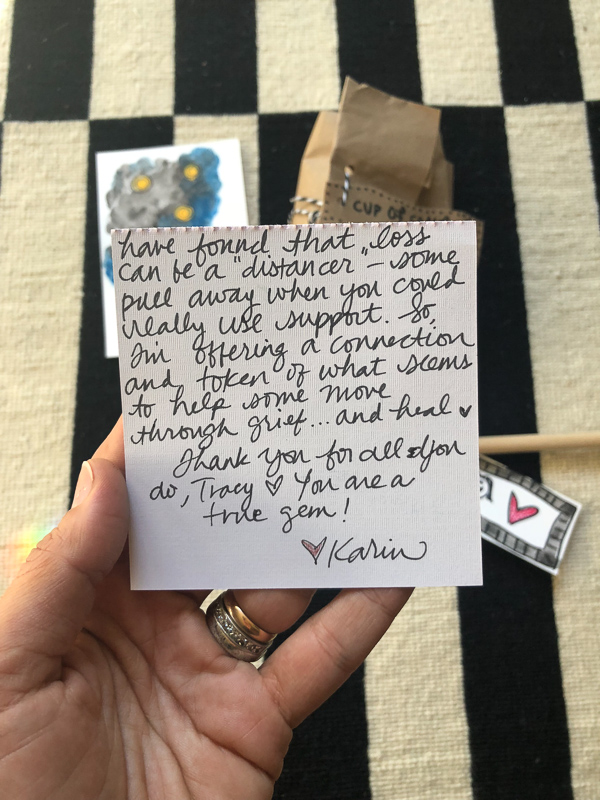 CUP OF
have found that "loss
can be a "distancer" – some
pull away when you could
really use support. So,
I'm offering a connection
and token of what seems
to help some move
through grief... and heal ♥
Thank you for all you
do, Tracy ♡ You are a
true gem!
♡ Karin